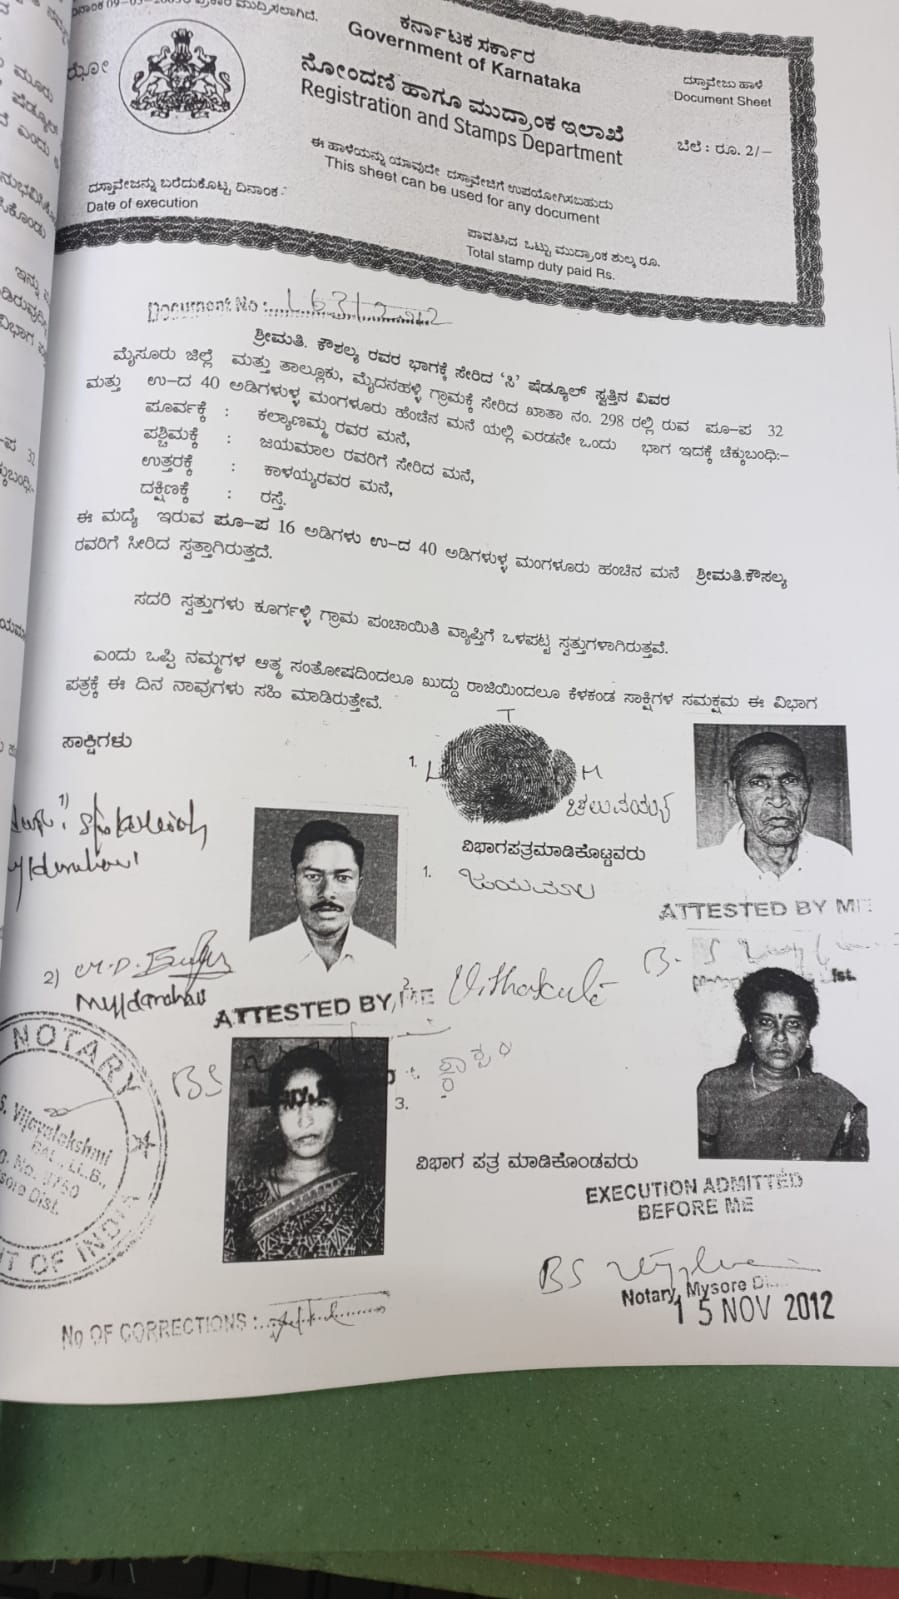 ದಿನಾಂಕ 09-05- ಪ್ರಕಾರ ಮುದ್ರಿಸಲಾಗಿದೆ.
ಕರ್ನಾಟಕ ಸರ್ಕಾರ
Government of Karnataka
ನೋಂದಣಿ ಹಾಗೂ ಮುದ್ರಾಂಕ ಇಲಾಖೆ
Registration and Stamps Department
ದಸ್ತಾವೇಜು ಹಾಳೆ
Document Sheet
ಬೆಲೆ : ರೂ. 2/-
ಈ ಹಾಳೆಯನ್ನು ಯಾವುದೇ ದಸ್ತಾವೇಜಿಗೆ ಉಪಯೋಗಿಸಬಹುದು
This sheet can be used for any document
ದಸ್ತಾವೇಜನ್ನು ಬರೆದುಕೊಟ್ಟ ದಿನಾಂಕ :
Date of execution
ಪಾವತಿಸಿದ ಒಟ್ಟು ಮುದ್ರಾಂಕ ಶುಲ್ಕ ರೂ.
Total stamp duty paid Rs.
Document No :
ಶ್ರೀಮತಿ. ಕೌಶಲ್ಯ ರವರ ಭಾಗಕ್ಕೆ ಸೇರಿದ 'ಸಿ' ಷೆಡ್ಯೂಲ್ ಸ್ವತ್ತಿನ ವಿವರ
ಮೈಸೂರು ಜಿಲ್ಲೆ ಮತ್ತು ತಾಲ್ಲೂಕು, ಮೈದನಹಳ್ಳಿ ಗ್ರಾಮಕ್ಕೆ ಸೇರಿದ ಖಾತಾ ನಂ. 298 ರಲ್ಲಿ ರುವ ಪೂ-ಪ 32
ಮತ್ತು ಉ-ದ 40 ಅಡಿಗಳುಳ್ಳ ಮಂಗಳೂರು ಹೆಂಚಿನ ಮನೆ ಯಲ್ಲಿ ಎರಡನೇ ಒಂದು ಭಾಗ ಇದಕ್ಕೆ ಚೆಕ್ಕುಬಂಧಿ:-
ಪೂರ್ವಕ್ಕೆ : ಕಲ್ಯಾಣಮ್ಮ ರವರ ಮನೆ,
ಪಶ್ಚಿಮಕ್ಕೆ : ಜಯಮಾಲ ರವರಿಗೆ ಸೇರಿದ ಮನೆ,
ಉತ್ತರಕ್ಕೆ : ಕಾಳಯ್ಯರವರ ಮನೆ,
ದಕ್ಷಿಣಕ್ಕೆ : ರಸ್ತೆ.
ಈ ಮದ್ಯೆ ಇರುವ ಪೂ-ಪ 16 ಅಡಿಗಳು ಉ-ದ 40 ಅಡಿಗಳುಳ್ಳ ಮಂಗಳೂರು ಹಂಚಿನ ಮನೆ ಶ್ರೀಮತಿ.ಕೌಸಲ್ಯ
ರವರಿಗೆ ಸೀರಿದ ಸ್ವತ್ತಾಗಿರುತ್ತದೆ.
ಸದರಿ ಸ್ವತ್ತುಗಳು ಕೂರ್ಗಳ್ಳಿ ಗ್ರಾಮ ಪಂಚಾಯಿತಿ ವ್ಯಾಪ್ತಿಗೆ ಒಳಪಟ್ಟ ಸ್ವತ್ತುಗಳಾಗಿರುತ್ತವೆ.
ಎಂದು ಒಪ್ಪಿ ನಮ್ಮಗಳ ಆತ್ಮ ಸಂತೋಷದಿಂದಲೂ ಖುದ್ದು ರಾಜಿಯಿಂದಲೂ ಕೆಳಕಂಡ ಸಾಕ್ಷಿಗಳ ಸಮಕ್ಷಮ ಈ ವಿಭಾಗ
ಪತ್ರಕ್ಕೆ ಈ ದಿನ ನಾವುಗಳು ಸಹಿ ಮಾಡಿರುತ್ತೇವೆ.
ಸಾಕ್ಷಿಗಳು
1.
L T M
ಚಲುವಯ್ಯ
1)
ವಿಭಾಗಪತ್ರಮಾಡಿಕೊಟ್ಟವರು
1. ಜಯಮಾಲ
ATTESTED BY ME
2)
ATTESTED BY ME
2.
NOTARY
S. Vijayalakshmi
BAL, LL.B.,
Mysore Dist.
3.
ವಿಭಾಗ ಪತ್ರ ಮಾಡಿಕೊಂಡವರು
EXECUTION ADMITTED
BEFORE ME
Notary, Mysore
15 NOV 2012
No OF CORRECTIONS :